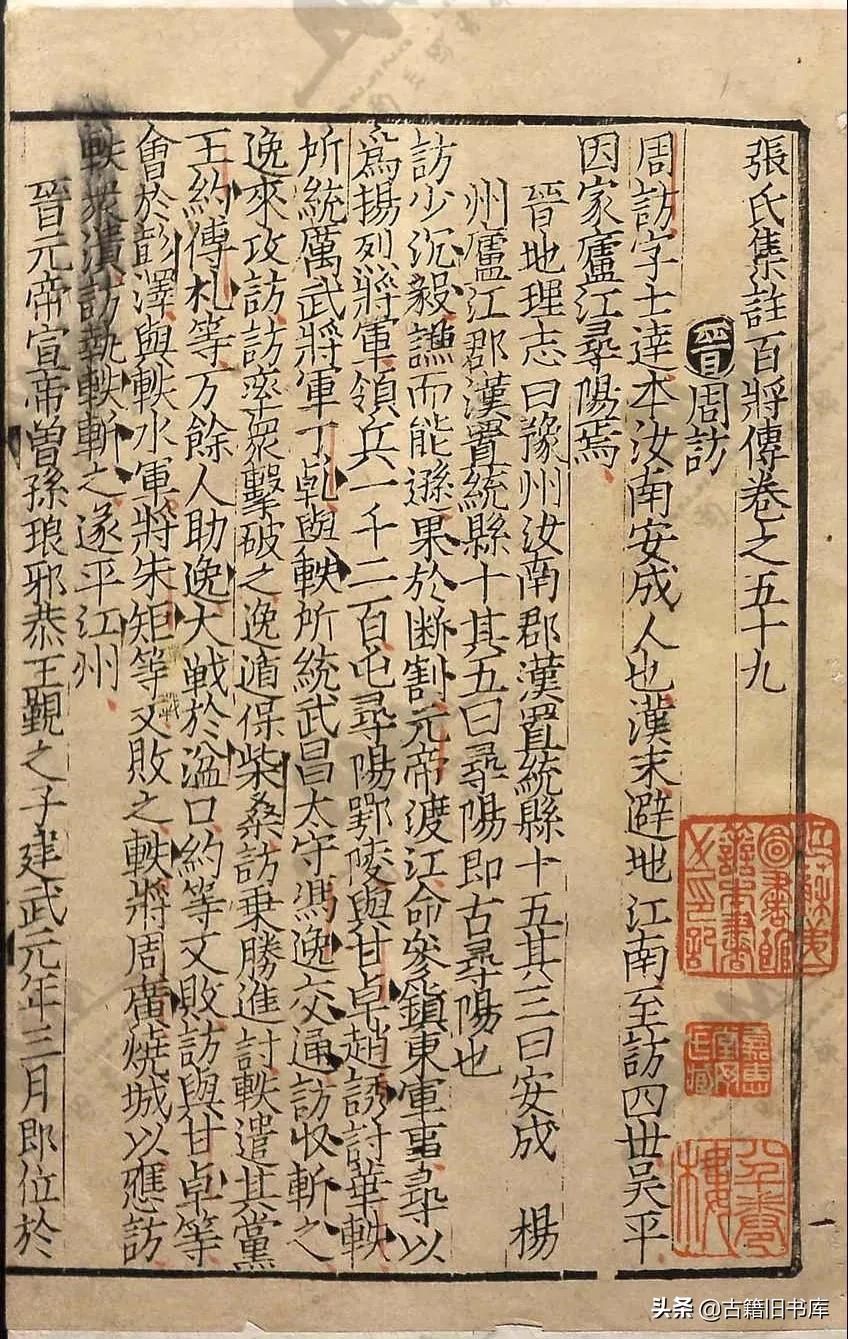 張氏集註百將傳卷之五十九
晉 周訪
周訪字士達本汝南安成人也漢末避地江南至訪四世吳平
因家廬江尋陽焉
晉地理志曰豫州汝南郡漢置統縣十五其三曰安成 楊
州廬江郡漢置統縣十其五曰尋陽即古尋陽也
訪少沉毅謙而能遜果於断割元帝渡江命參鎮東軍事尋以
為揚烈將軍領兵一千二百屯尋陽鄂陵與甘卓趙誘討華軼
所統厲武將軍丁乹與軼所統武昌太守馮逸交通訪收斬之
逸來攻訪訪率眾擊破之逸遁保柴桑訪乗勝進討軼遣其黨
王約傅札等万餘人助逸大戦於湓口約等又敗訪與甘卓等
會於彭澤與軼水軍將朱矩等又敗之軼將周廣燒城以應訪
軼衆潰訪執軼斬之遂平江州
晉元帝宣帝曽孫琅邪恭王覲之子建武元年三月即位於
一
半𡩋
樓
头条 @古籍旧书库